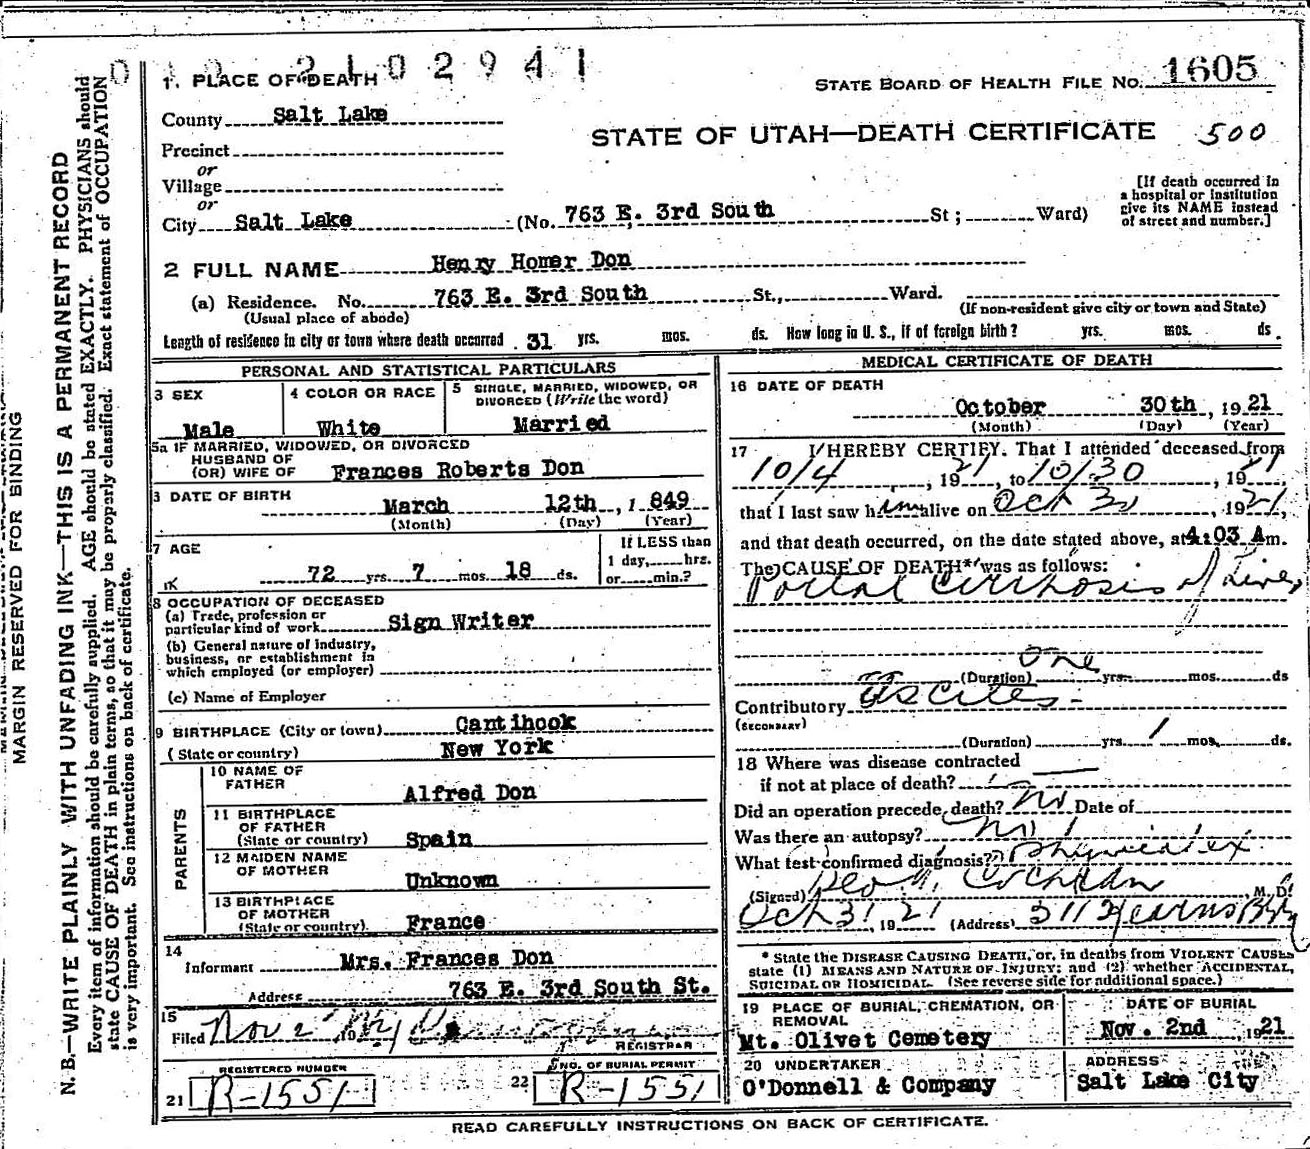 2102941
1. PLACE OF DEATH
STATE BOARD OF HEALTH FILE No. 1605
County Salt Lake
STATE OF UTAH—DEATH CERTIFICATE 500
Precinct
or
Village
or
City Salt Lake (No. 763 E. 3rd South St; Ward)
[If death occurred in
a hospital or institution
give its NAME instead
of street and number.]
2 FULL NAME Henry Homer Don
(a) Residence. No. 763 E. 3rd South St., Ward.
(Usual place of abode) (If non-resident give city or town and State)
Length of residence in city or town where death occurred 31 yrs. mos. ds. How long in U. S., if of foreign birth? yrs. mos. ds.
PERSONAL AND STATISTICAL PARTICULARS
3 SEX
Male
4 COLOR OR RACE
White
5 SINGLE, MARRIED, WIDOWED, OR
DIVORCED (Write the word)
Married
5a IF MARRIED, WIDOWED, OR DIVORCED
HUSBAND OF
(OR) WIFE OF Frances Roberts Don
DATE OF BIRTH
March 12th, 1849
(Month) (Day) (Year)
7 AGE
72 yrs. 7 mos. 18 ds.
If LESS than
1 day, hrs.
or min.?
8 OCCUPATION OF DECEASED
(a) Trade, profession or
particular kind of work Sign Writer
(b) General nature of industry,
business, or establishment in
which employed (or employer)
(c) Name of Employer
9 BIRTHPLACE (City or town) Cantihook
(State or country) New York
PARENTS
10 NAME OF
FATHER
Alfred Don
11 BIRTHPLACE
OF FATHER
(State or country) Spain
12 MAIDEN NAME
OF MOTHER
Unknown
13 BIRTHPLACE
OF MOTHER
(State or country). France
14
Informant Mrs. Frances Don
Address 763 E. 3rd South St.
15
Filed Nov 2
REGISTRAR
REGISTERED NUMBER
21 R-1551
NO. OF BURIAL PERMIT
22 R-1551
MEDICAL CERTIFICATE OF DEATH
16 DATE OF DEATH
October 30th, 1921
(Month) (Day) (Year)
17 I HEREBY CERTIFY. That I attended deceased from
10/4, 1921, to 10/30, 1921
that I last saw him alive on Oct 30, 1921,
and that death occurred, on the date stated above, at 4:03 A m.
The CAUSE OF DEATH* was as follows:
Portal Cirrhosis of Liver
one
(Duration) yrs. mos. ds
Contributory Ascites -
(SECONDARY)
(Duration) yrs. 1 mos. ds.
18 Where was disease contracted
if not at place of death?
Did an operation precede death? No Date of
Was there an autopsy? No
What test confirmed diagnosis? Physical ex
(Signed) Geo. A. Cochran, M. D.
Oct 31, 1921 (Address) 311 Kearns Bldg
* State the DISEASE CAUSING DEATH, or, in deaths from VIOLENT CAUSES
state (1) MEANS AND NATURE OF INJURY; and (2) whether ACCIDENTAL,
SUICIDAL OR HOMICIDAL. (See reverse side for additional space.)
19 PLACE OF BURIAL, CREMATION, OR
REMOVAL
Mt. Olivet Cemetery
DATE OF BURIAL
Nov. 2nd 1921
20 UNDERTAKER
O'Donnell & Company
ADDRESS
Salt Lake City
READ CAREFULLY INSTRUCTIONS ON BACK OF CERTIFICATE.
MARGIN RESERVED FOR BINDING
N. B.—WRITE PLAINLY WITH UNFADING INK—THIS IS A PERMANENT RECORD
Every item of information should be carefully supplied. AGE should be stated EXACTLY. PHYSICIANS should
state CAUSE OF DEATH in plain terms, so that it may be properly classified. Exact statement of OCCUPATION
is very important. See instructions on back of certificate.